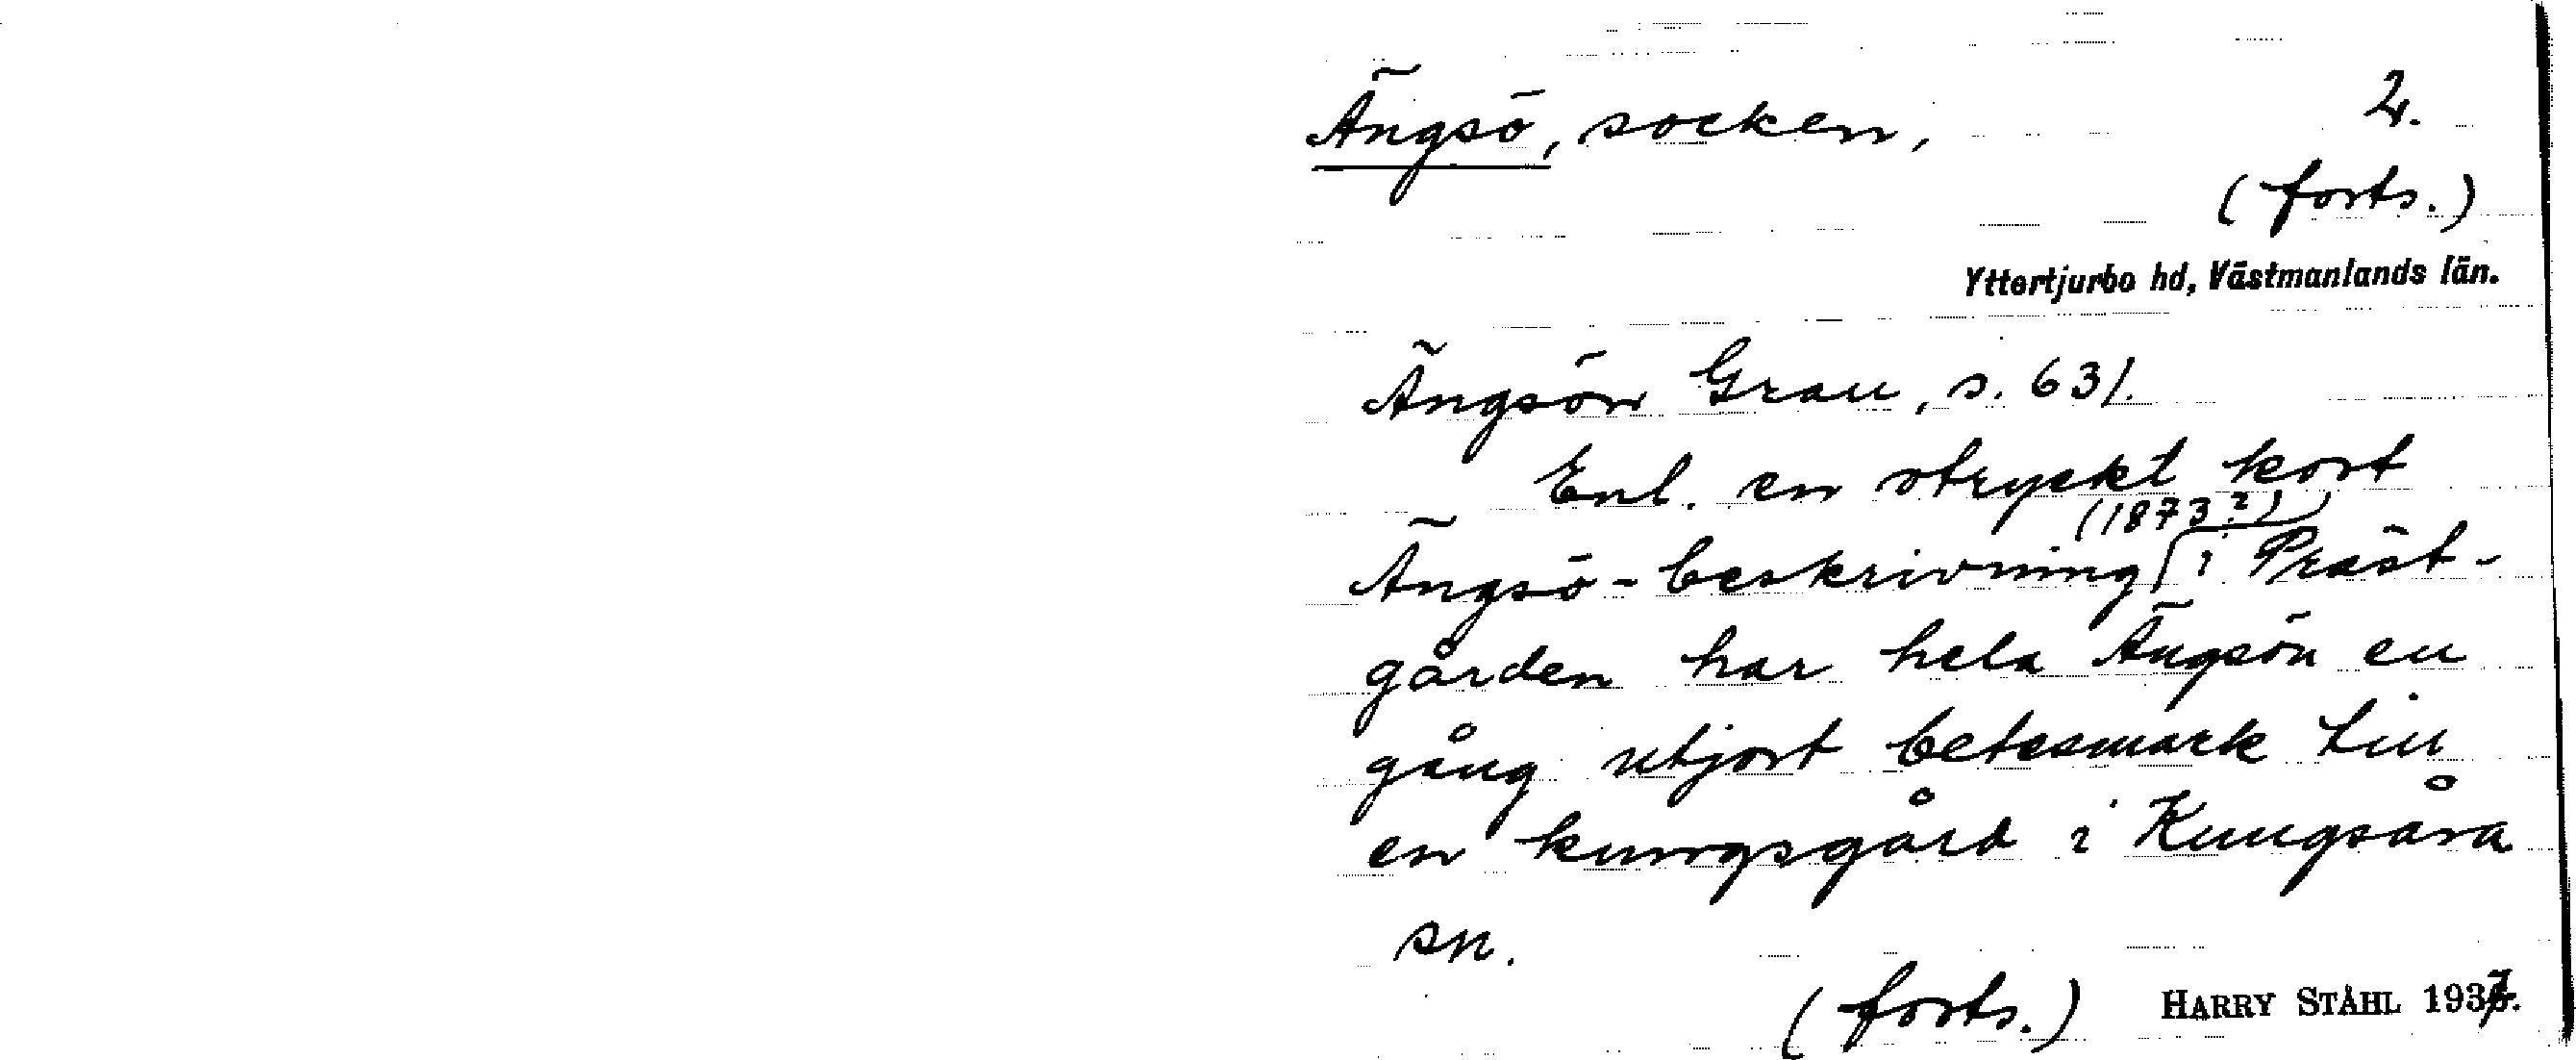 Ängsö, socken, 2.
(forts.)
Yttertjurbo hd, Västmanlands län.
Ängsön Grau, s. 631.
Enl. en otryckt kort
(1873?)
Ängsö-beskrivning i Präst-
gården har hela Ängsön en
gång utjort betesmark till
en kungsgård i Kungsåra
sn.
(forts.) HARRY STÅHL 1937.